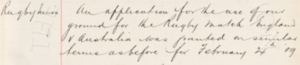 Rugby Union An application for the use of your
ground for the Rugby Match England
v Australia was granted on similar
terms as before for February 24th 09